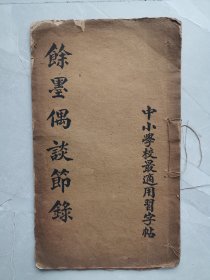 中小學校最適用習字帖
餘墨偶談節錄